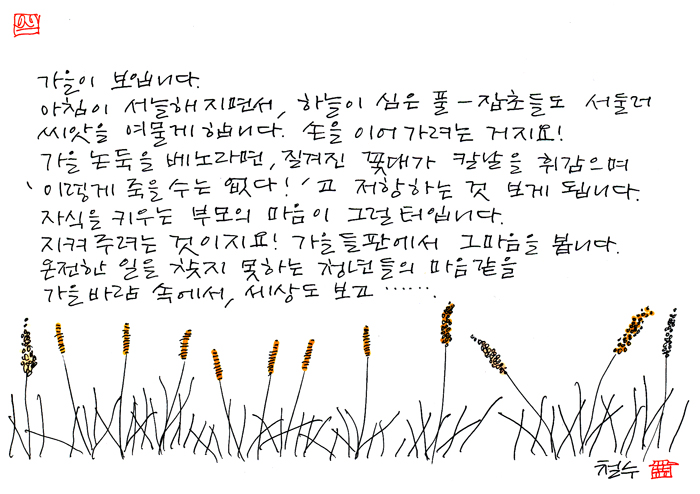 가을이 보입니다.
아침이 서늘해지면서, 하늘이 심은 풀-잡초들도 서둘러
씨앗을 여물게 합니다. 손을 이어가려는 거지요!
가을 논둑을 베노라면, 질겨진 꽃대가 칼날을 휘감으며
'이렇게 죽을 수는 없다!'고 저항하는 것 보게 됩니다.
자식을 키우는 부모의 마음이 그럴 터입니다.
지켜주려는 것이지요! 가을 들판에서 그마음을 봅니다.
온전한 일을 찾지 못하는 청년들의 마음같을
가을바람 속에서, 세상도 보고 …….
철수